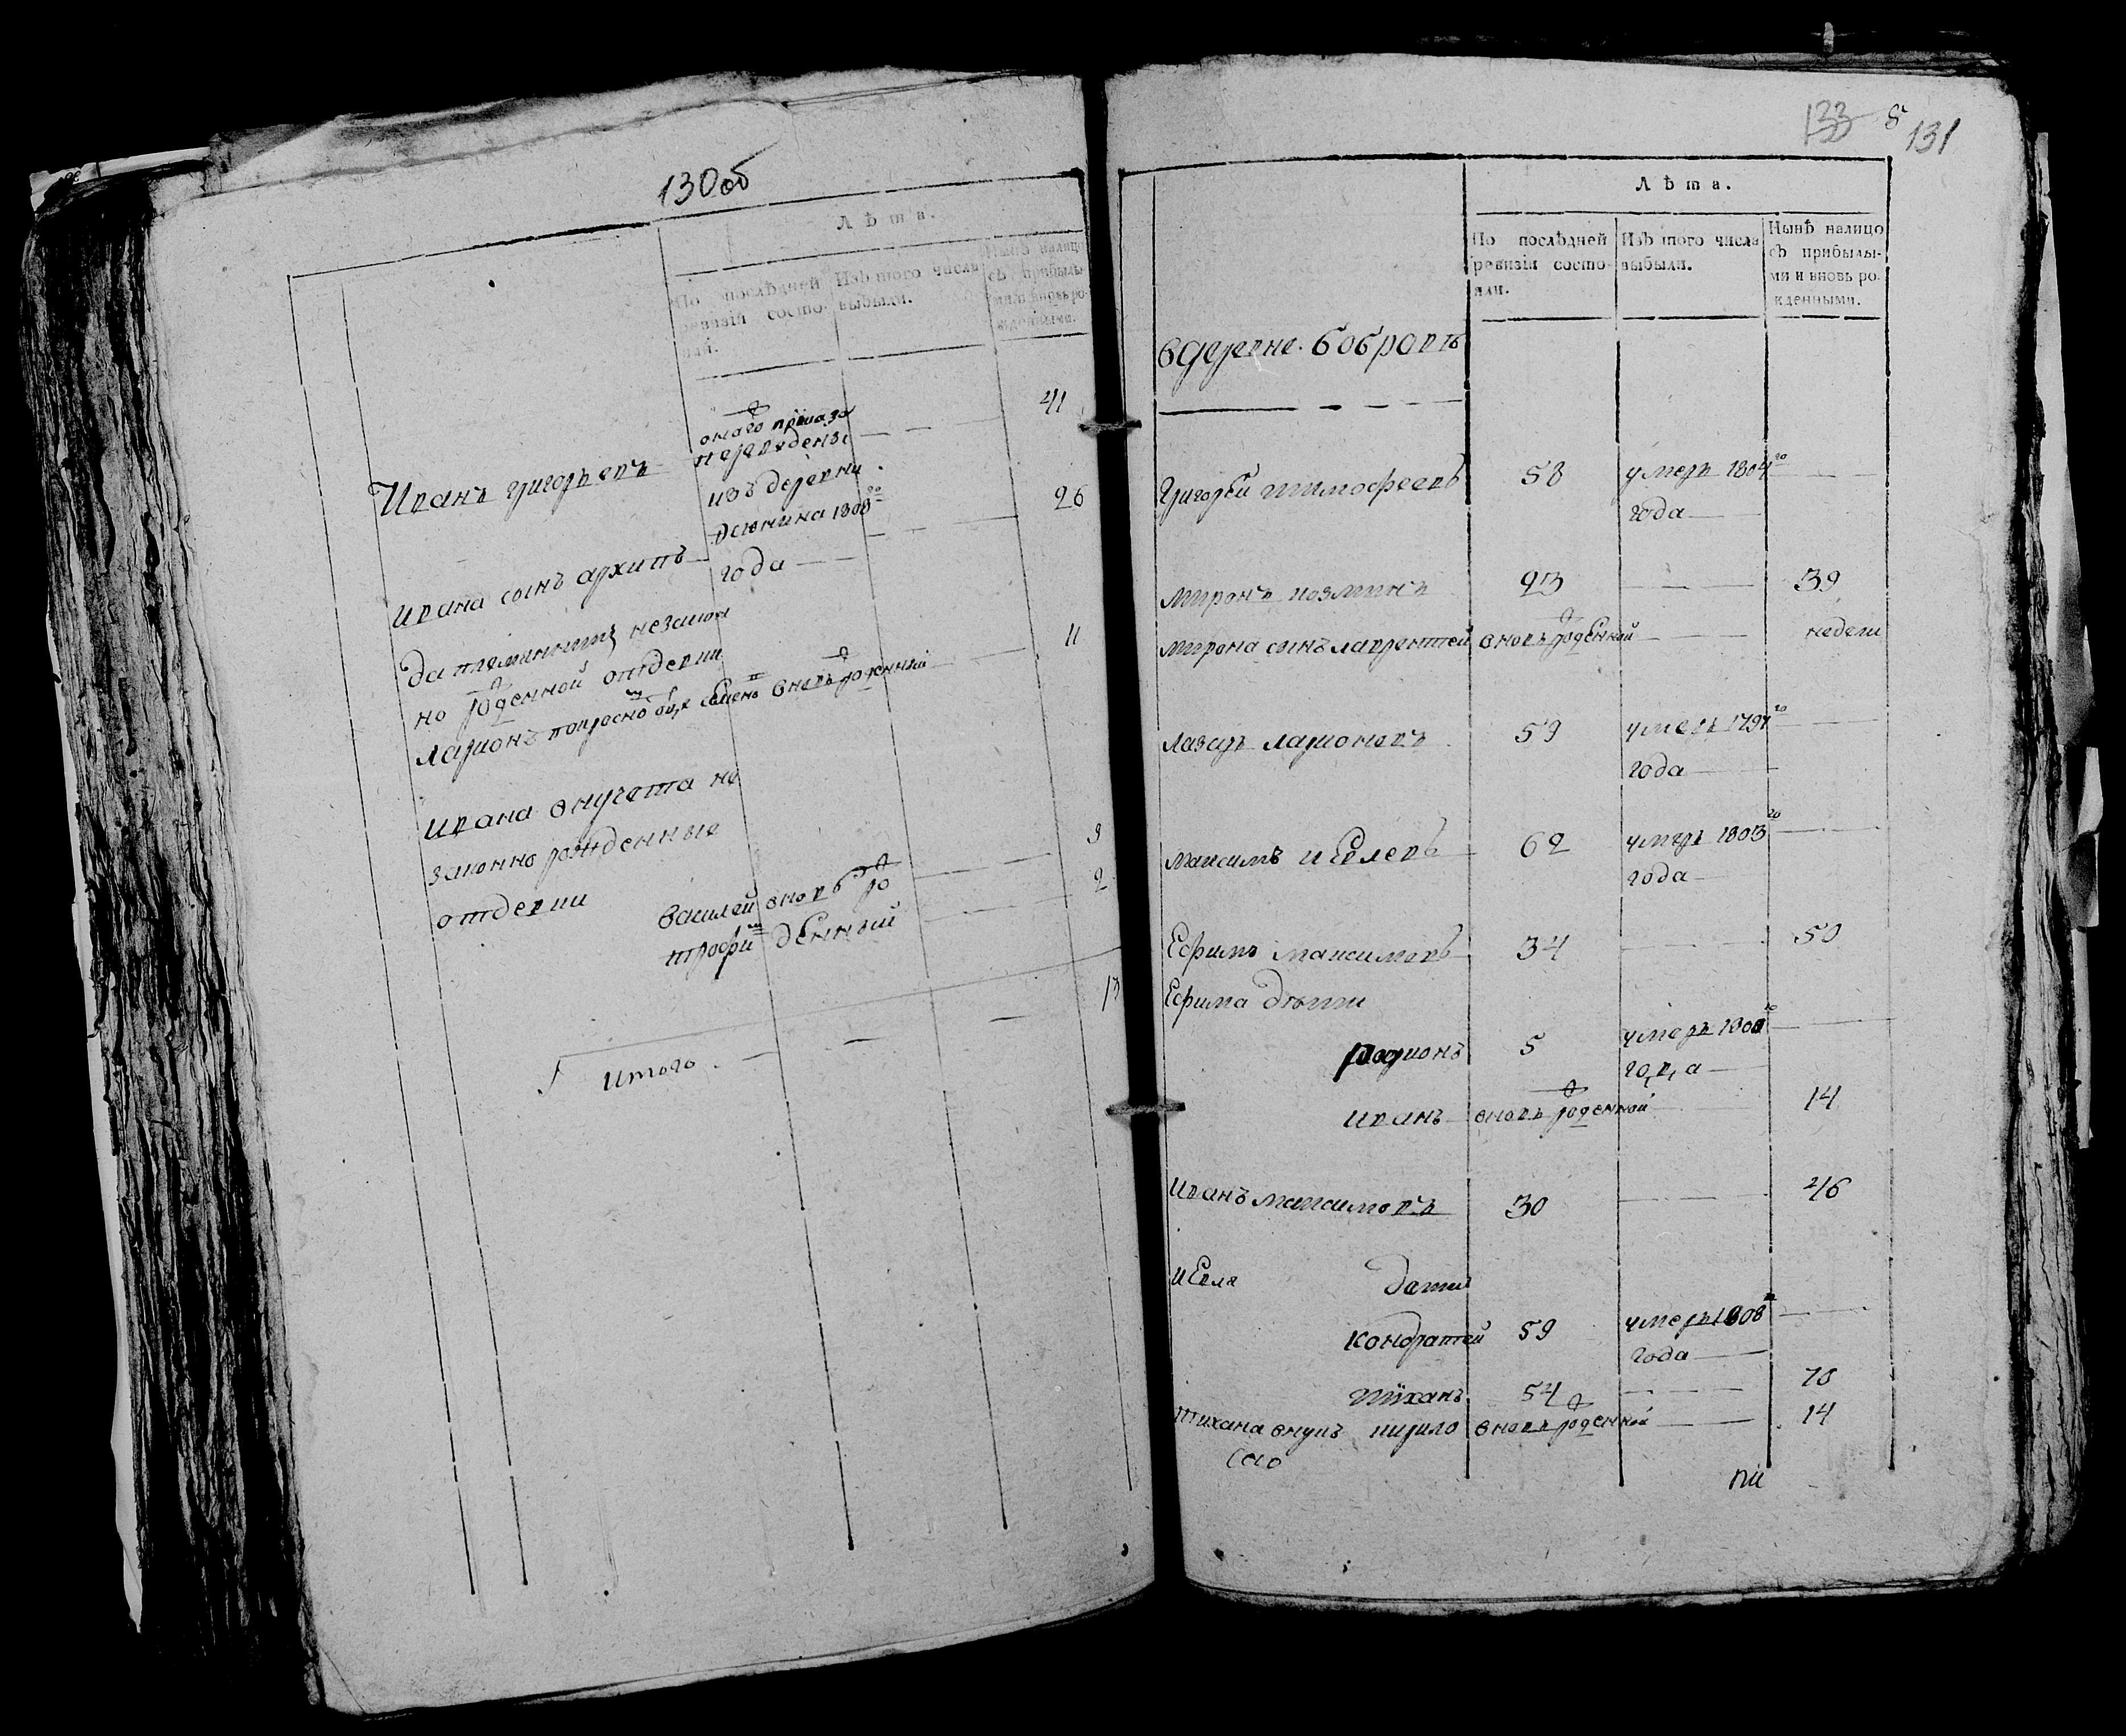 130 об
Лѣта.
По послѣдней ревизіи состояли.
Изъ того числа выбыли.
Нынѣ налицо съ прибылыми и вновь рожденными.
Иванъ григорьевъ
онаго приказа
переведенъ
изъ деревни
1808го
года
41
Ивана сынъ архипъ
26
да племянникъ незакон
но рожденной отдевки
Ларионъ
вновь рожденный
11
Ивана внучета не
законно рожденные
отдевки
василей вновь ро
9
трофим денный
2
Итого
13
133
8
131
Лѣта.
По послѣдней ревизіи состояли.
Изъ того числа выбыли.
Нынѣ налицо съ прибылыми и вновь рожденными.
вдеревне бобровѣ
Григорьй тимофеевъ 58 умеръ 1804го
года
миронъ козминъ 23 39
мирона сынъ лаврентей вновь рожденной недели
Лазарь ларионовъ 59 умеръ 1797го
года
максимъ иевлевъ 62 умеръ 1803го
года
Ефимъ максимовъ 34 50
Ефима дѣти
умеръ 1800го
ларионъ 5
года
иванъ вновь рожденной 14
Иванъ максимовъ 30 46
иевля дѣти
кондратей 59 умеръ 1808го
года
тиханъ 54 70
тихана внукъ кирило вновь рожденной 14